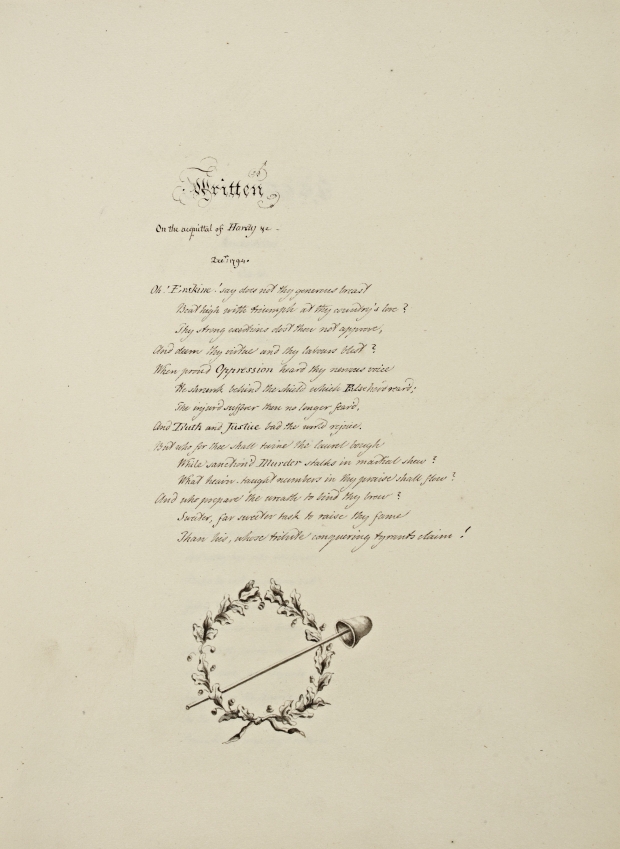 Written
On the acquittal of Hardy &c -
Decr 1794.
Oh! Erskine! say does not thy generous breast
Beat high with triumph at thy country's love?
Thy strong exertions dost thou not approve,
And deem thy virtue and thy labours blest?
When proud Oppression heard thy nervous voice
He shrunk behind the shield which Falsehood reard;
The injurd sufferer then no longer feard,
And Truth and Justice bad the world rejoice.
But who for thee shall twine the laurel bough
While sanctiond Murder stalks in martial shew?
What heavn-taught numbers in thy praise shall flow?
And who prepare the wreath to bind thy brow?
Sweeter, far sweeter task to raise thy fame
Than his, whose tribute conquering tyrants claim!